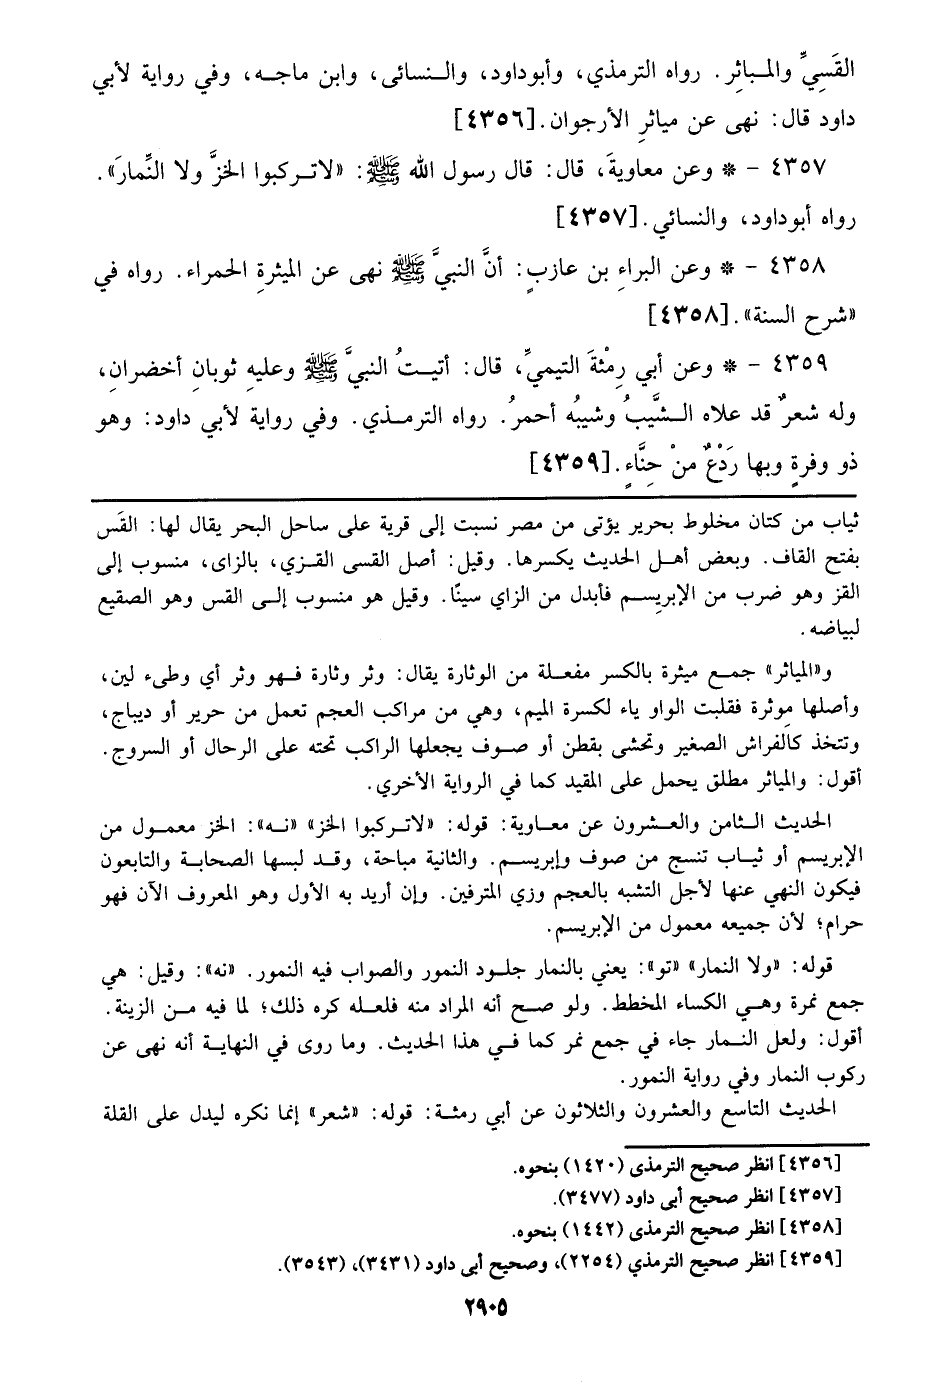 القَسِيِّ والمـباثِر. رواه الترمذي، وأبوداود، والـنسائى، وابن ماجـه، وفي رواية لأبي
داود قال: نهى عن مياثرِ الأرجوان.[٤٣٥٦]
٤٣٥٧ - * وعن معاويةَ، قال: قال رسول الله ﷺ: «لاتـركبوا الخزَّ ولا النِّمارَ».
رواه أبوداود، والنسائي.[٤٣٥٧]
٤٣٥٨ - * وعن البراءِ بن عازبٍ: أنَّ النبيَّ ﷺ نهى عن الميثرةِ الحمراء. رواه في
«شرح السنة».[٤٣٥٨]
٤٣٥٩ - * وعن أبي رِمْثةَ التيميِّ، قال: أتيتُ النبيَّ ﷺ وعليهِ ثوبانِ أخضرانِ،
وله شعرٌ قد علاه الـشَّيبُ وشيبُه أحمرُ. رواه الترمـذي. وفي رواية لأبي داود: وهو
ذو وفرةٍ وبها رَدْعٌ منْ حِنَّاءٍ.[٤٣٥٩]
ثياب من كتان مخلوط بحرير يؤتى من مصر نسبت إلى قرية على ساحل البحر يقال لها: القَس
بفتح القاف. وبعض أهـل الحديث يكسرها. وقيل: أصل القسى القـزي، بالزاى، منسوب إلى
القز وهو ضرب من الإبريـسم فأبدل من الزاي سينًا. وقيل هو منسوب إلـى القس وهو الصقيع
لبياضه.
و«المياثر» جمـع ميثرة بالكسر مفعـلة من الوثارة يقال: وثر وثارة فـهو وثر أي وطىء لين،
وأصلها مِوثرة فقلبت الواو ياء لكسرة الميم، وهي من مراكب العجم تعمل من حرير أو ديباج،
وتتخذ كالفراش الصغير وتحشى بقطن أو صـوف يجعلها الراكب تحته على الرحال أو السروج.
أقول: والمياثر مطلق يحمل على المقيد كما في الرواية الأخري.
الحديث الـثامن والعـشرون عن معـاوية: قوله: «لاتـركبوا الخز» «نـه»: الخز معمول من
الإبريسم أو ثيـاب تنسج من صوف وإبريـسم. والثانية مباحة، وقـد لبسها الصحابـة والتابعون
فيكون النهي عنها لأجل التشبه بالعجم وزي المترفين. وإن أريد به الأول وهو المعروف الآن فهو
حرام؛ لأن جميعه معمول من الإبريسم.
قوله: «ولا النمار» «تو»: يعني بالنمار جلـود النمور والصواب فيه النمور. «نه»: وقيل: هي
جمع نمرة وهـي الكساء المخطط. ولو صـح أنه المراد منه فلعـله كره ذلك؛ لما فيه مـن الزينة.
أقول: ولعل النـمار جاء في جمع نمر كما فـي هذا الحديث. وما روى في النهايـة أنه نهى عن
ركوب النمار وفي رواية النمور.
الحديث التاسع والعشرون والثلاثون عن أبي رمثـة: قوله: «شعر» إنما نكره ليدل على القلة
[٤٣٥٦] انظر صحيح الترمذى (١٤٢٠) بنحوه.
[٤٣٥٧] انظر صحيح أبى داود (٣٤٧٧).
[٤٣٥٨] انظر صحيح الترمذى (١٤٤٢) بنحوه.
[٤٣٥٩] انظر صحيح الترمذي (٢٢٥٤)، وصحيح أبى داود (٣٤٣١)، (٣٥٤٣).
٢٩٠٥